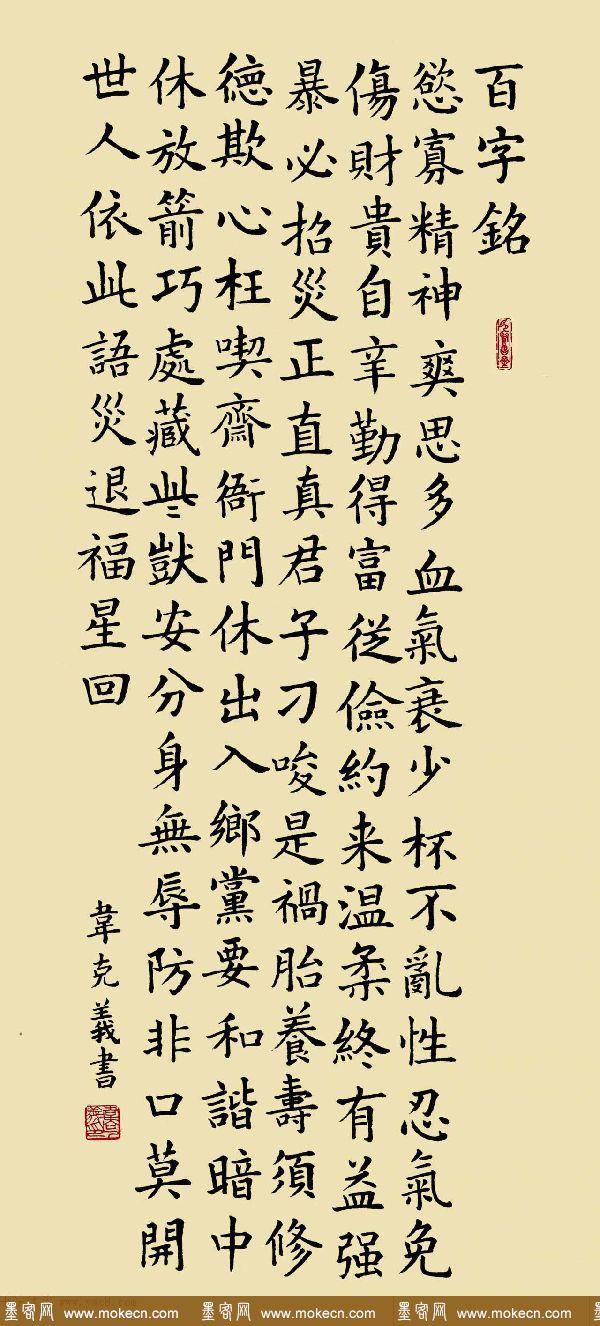 百字銘
慾寡精神爽思多血氣衰少杯不亂性忍氣免
傷財貴自辛勤得富從儉約来温柔終有益强
暴必招災正直真君子刁唆是禍胎養壽須修
德欺心枉喫齋衙門休出入鄉黨要和諧暗中
休放箭巧處藏些獃安分身無辱防非口莫開
世人依此語災退福星回
韋克義書
墨客网 www.mokecn.com 墨客网 www.mokecn.com 墨客网 www.mokecn.com